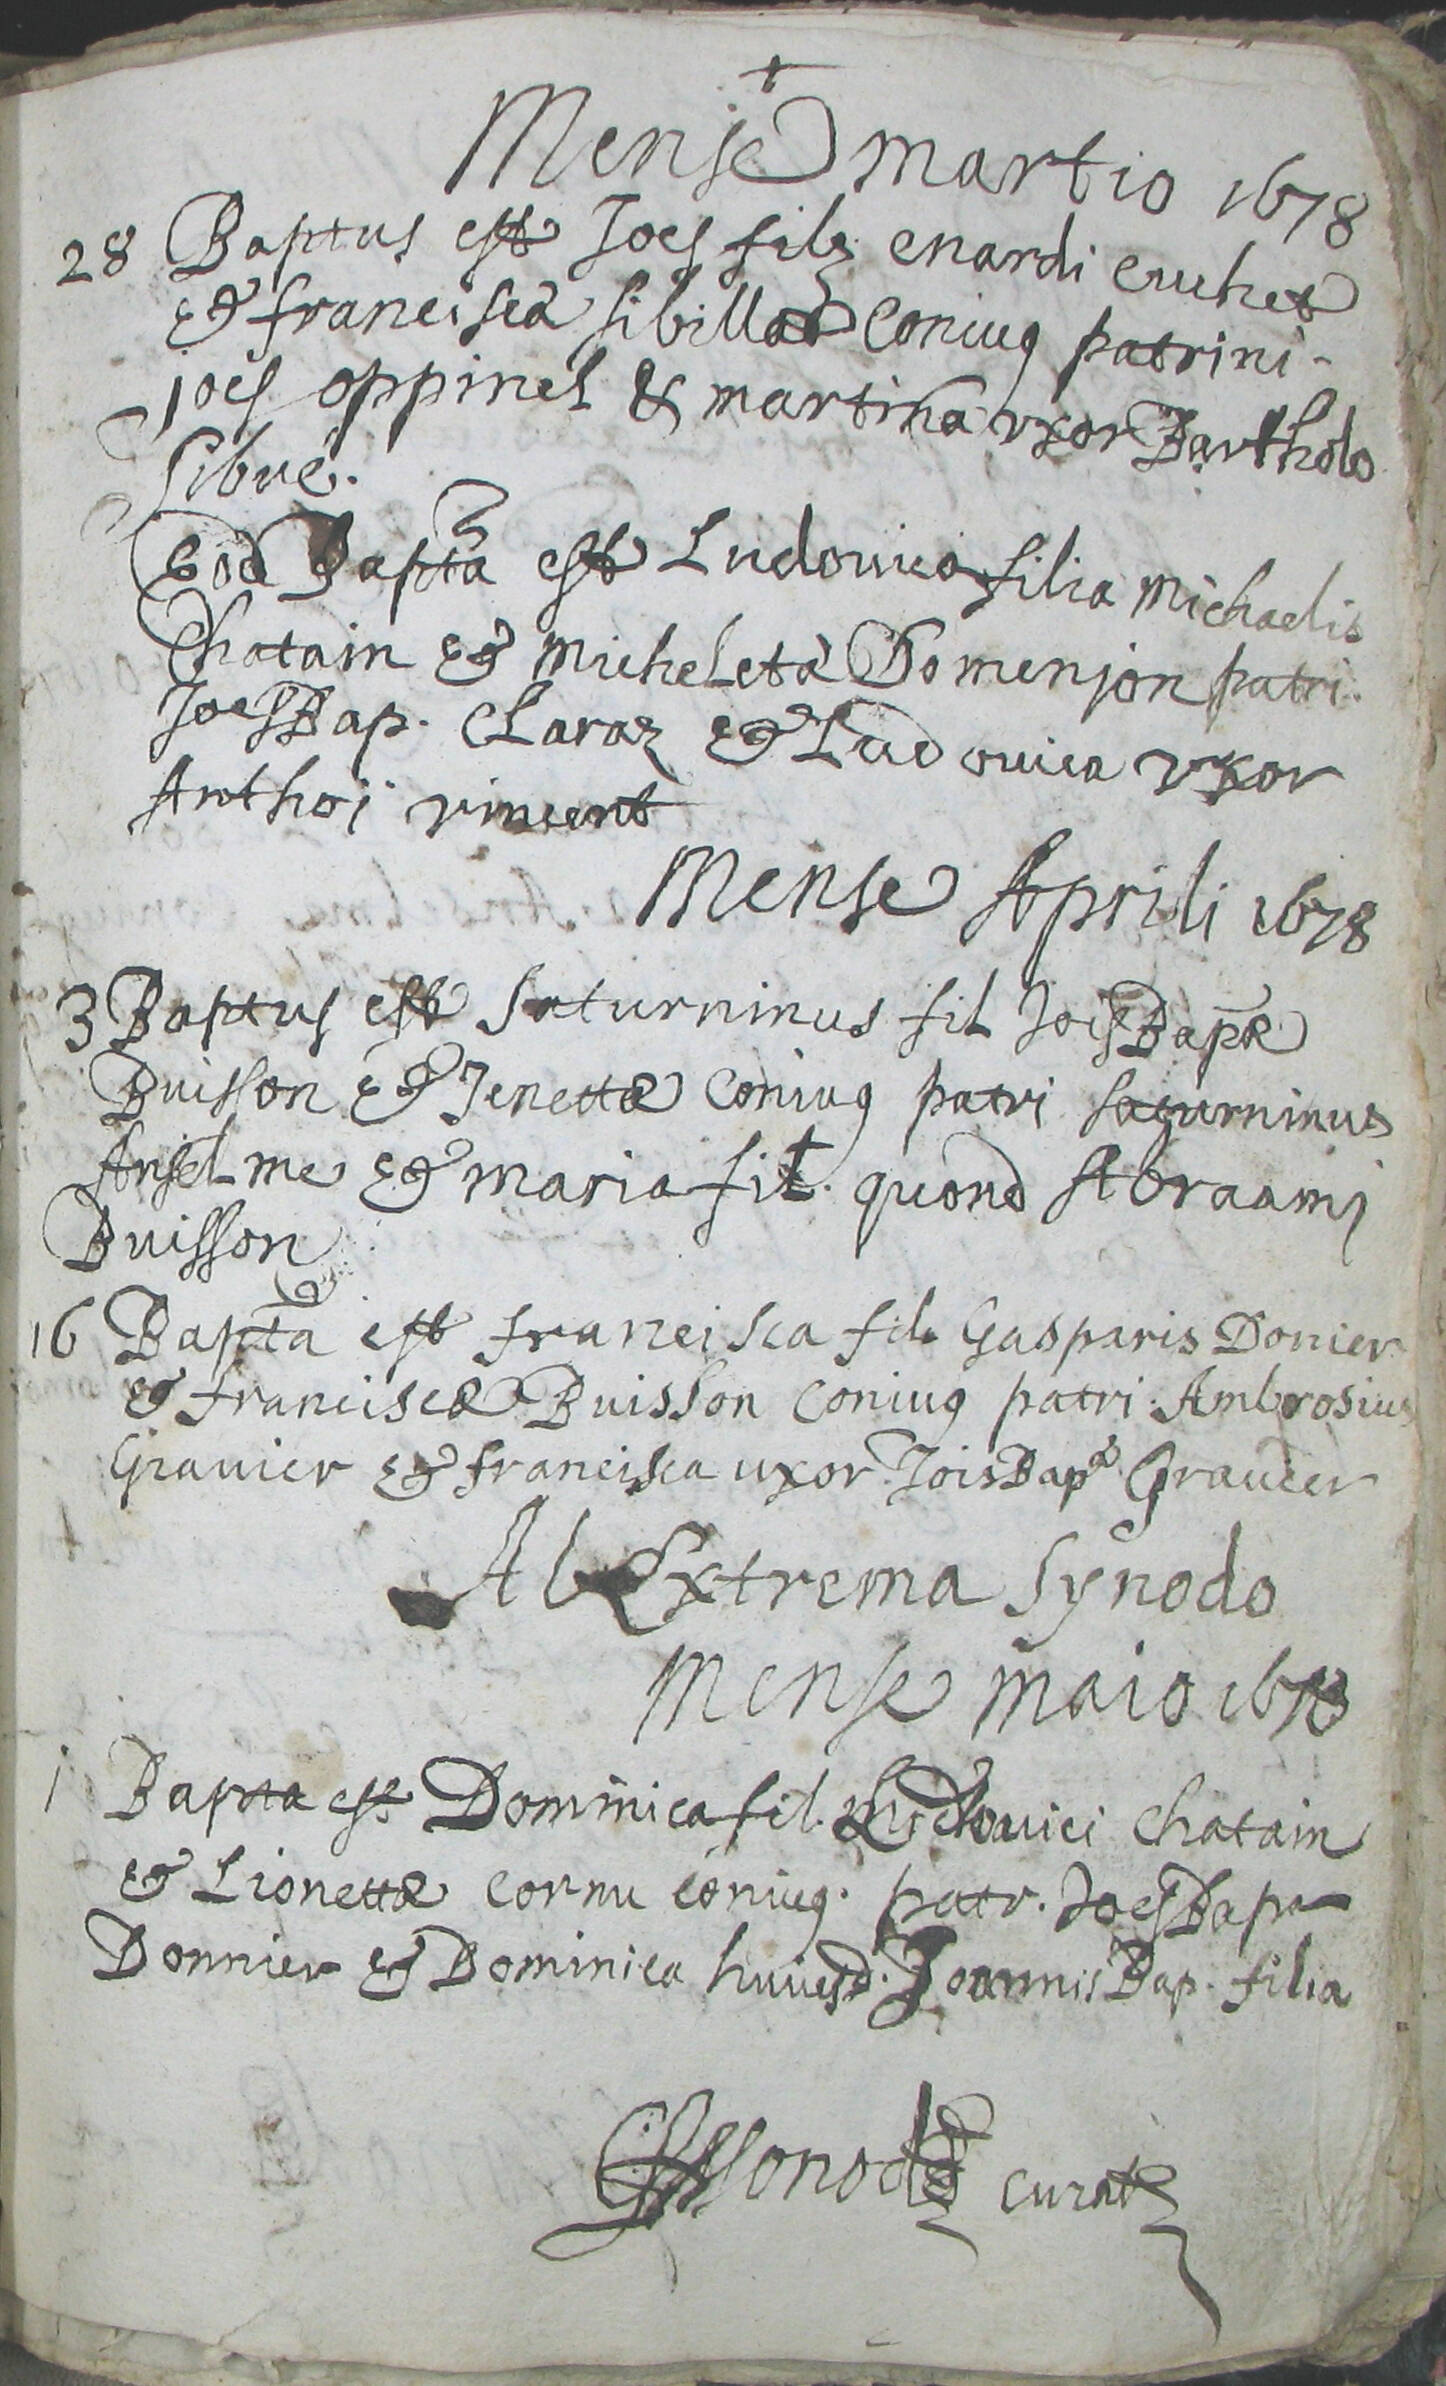 +
Mense martio 1678
28 Baptus est Joes filz enardi cruhet
& francisca sibillat Coniug patrini
joes oppinel & martina vxor Bartholo
sibué.
Eod Bapta est Ludouica filia michaelis
Chatain & micheleta Domenjon patri.
Joes Bap. Claraz & Ludouica vxor
Anthoi vincent
Mense Aprili 1678
3 Baptus est Saturninus fil Jois Bapæ
Buisson & Jenettæ Coniug patri Saturninus
Anselme & maria fil. quond Abraami
Buisson
16 Bapta est francisca fil. Gasparis Donier
& franciscæ Buisson coniug patri. Ambrosius
Grauier & francisca uxor Jois Bapa Grauier
Ab Extrema Synodo
Mense maio 1678
1 Bapta est Dominica fil. Ludouici Chatain
& Lionettæ cornu coniug. patr. Joes Bapa
Donnier & Dominica huiusd. Joannis Bap. filia
curats